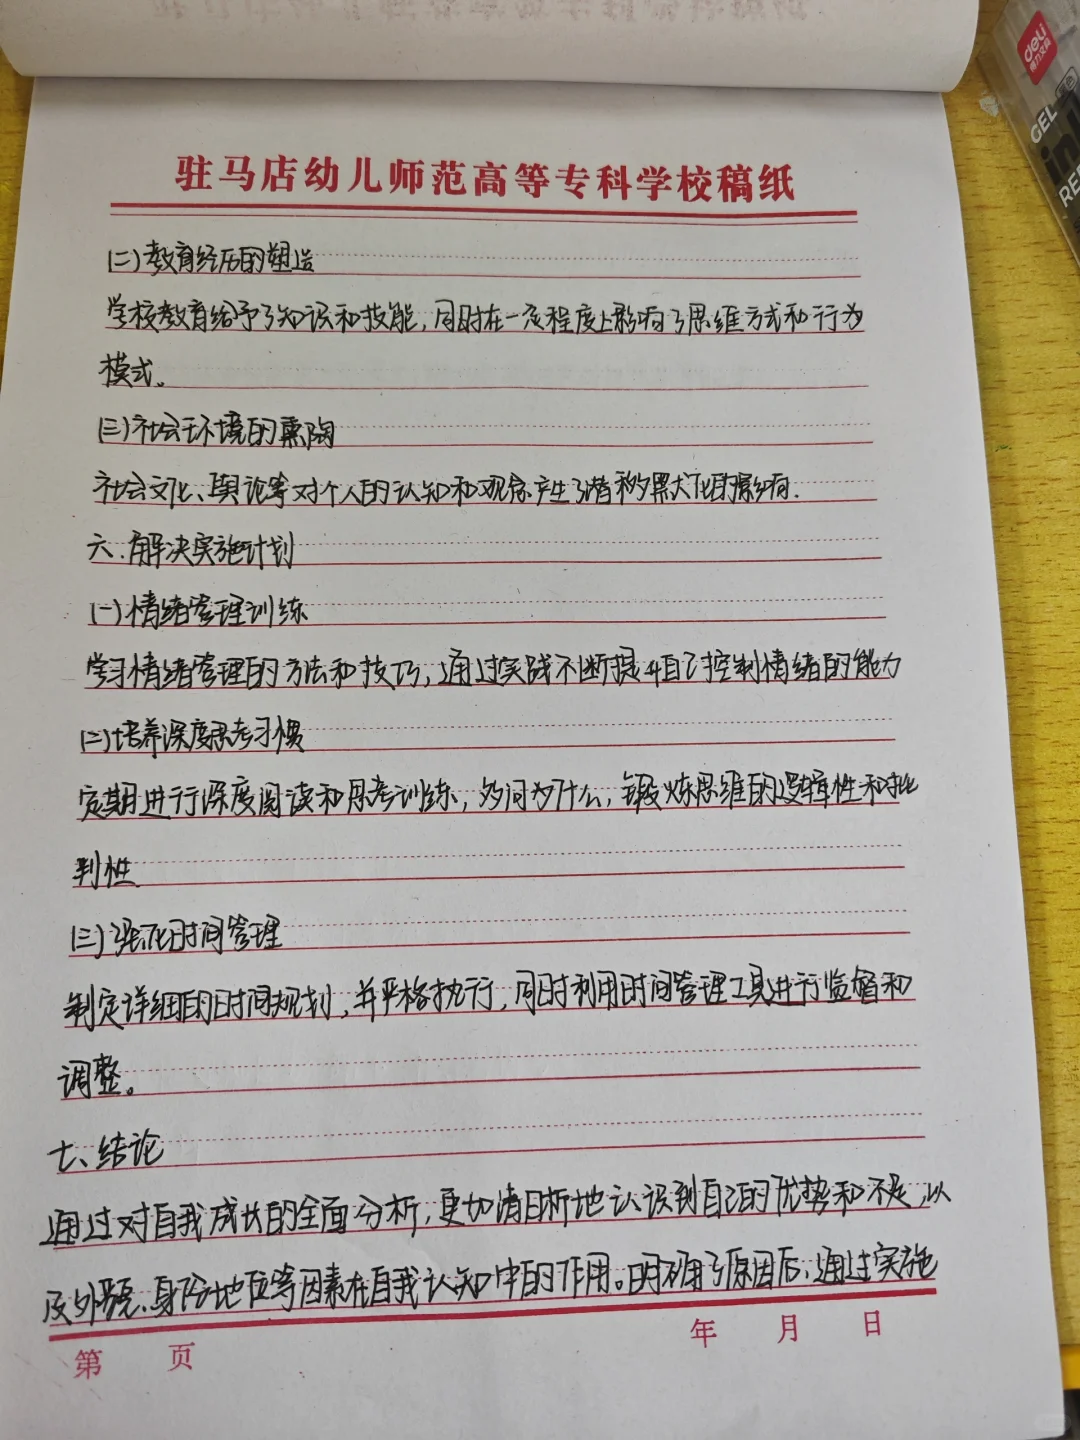 驻马店幼儿师范高等专科学校稿纸
(二)教育经历的塑造
学校教育给予了知识和技能,同时在一定程度上影响了思维方式和行为
模式。
(三)社会环境的熏陶
社会文化、舆论等对个人的认知和观念产生了潜移默化的影响.
六.解决实施计划
(一)情绪管理训练
学习情绪管理的方法和技巧,通过实践不断提升自己控制情绪的能力
(二)培养深度思考习惯
定期进行深度阅读和思考训练,多问为什么,锻炼思维的逻辑性和批
判性
(三)强化时间管理
制定详细的时间规划,并严格执行,同时利用时间管理工具进行监督和
调整。
七、结论
通过对自我成长的全面分析,更加清晰地认识到自己的优势和不足,以
及外貌、身份地位等因素在自我认知中的作用。明确了原因后,通过实施
第 页 年 月 日
deli
得力文具
GEL